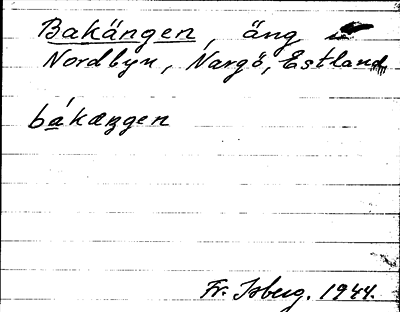 Bakängen, äng
Nordbyn, Nargö, Estland
bákæŋgen
Fr. Isberg. 1944.